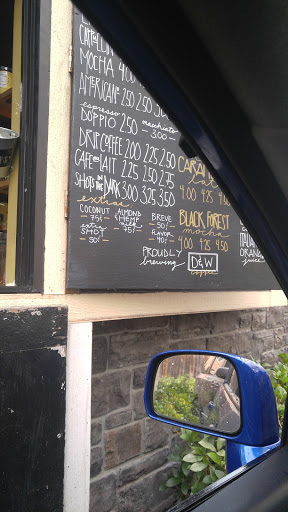 CAFE
MOCHA 4.00
AMERICANO 2.50 2.50
espresso
DOPPIO 2.50 macchiato
3.00
DRIP COFFEE 2.00 2.25 2.50
CAFE au LAIT 2.25 2.50 2.75
SHOT in the DARK 3.00 3.25 3.50
extras
COCONUT ALMOND BREVE
75¢ HEMP 50¢
milk
75¢
extra SHOT FLAVOR
50¢ 40¢
PROUDLY
brewing D&W
coffee
CARAM
4.00 4.25 4.50
BLACK FOREST
mocha
4.00 4.25 4.50
ITALIAN
ORANGE
juice